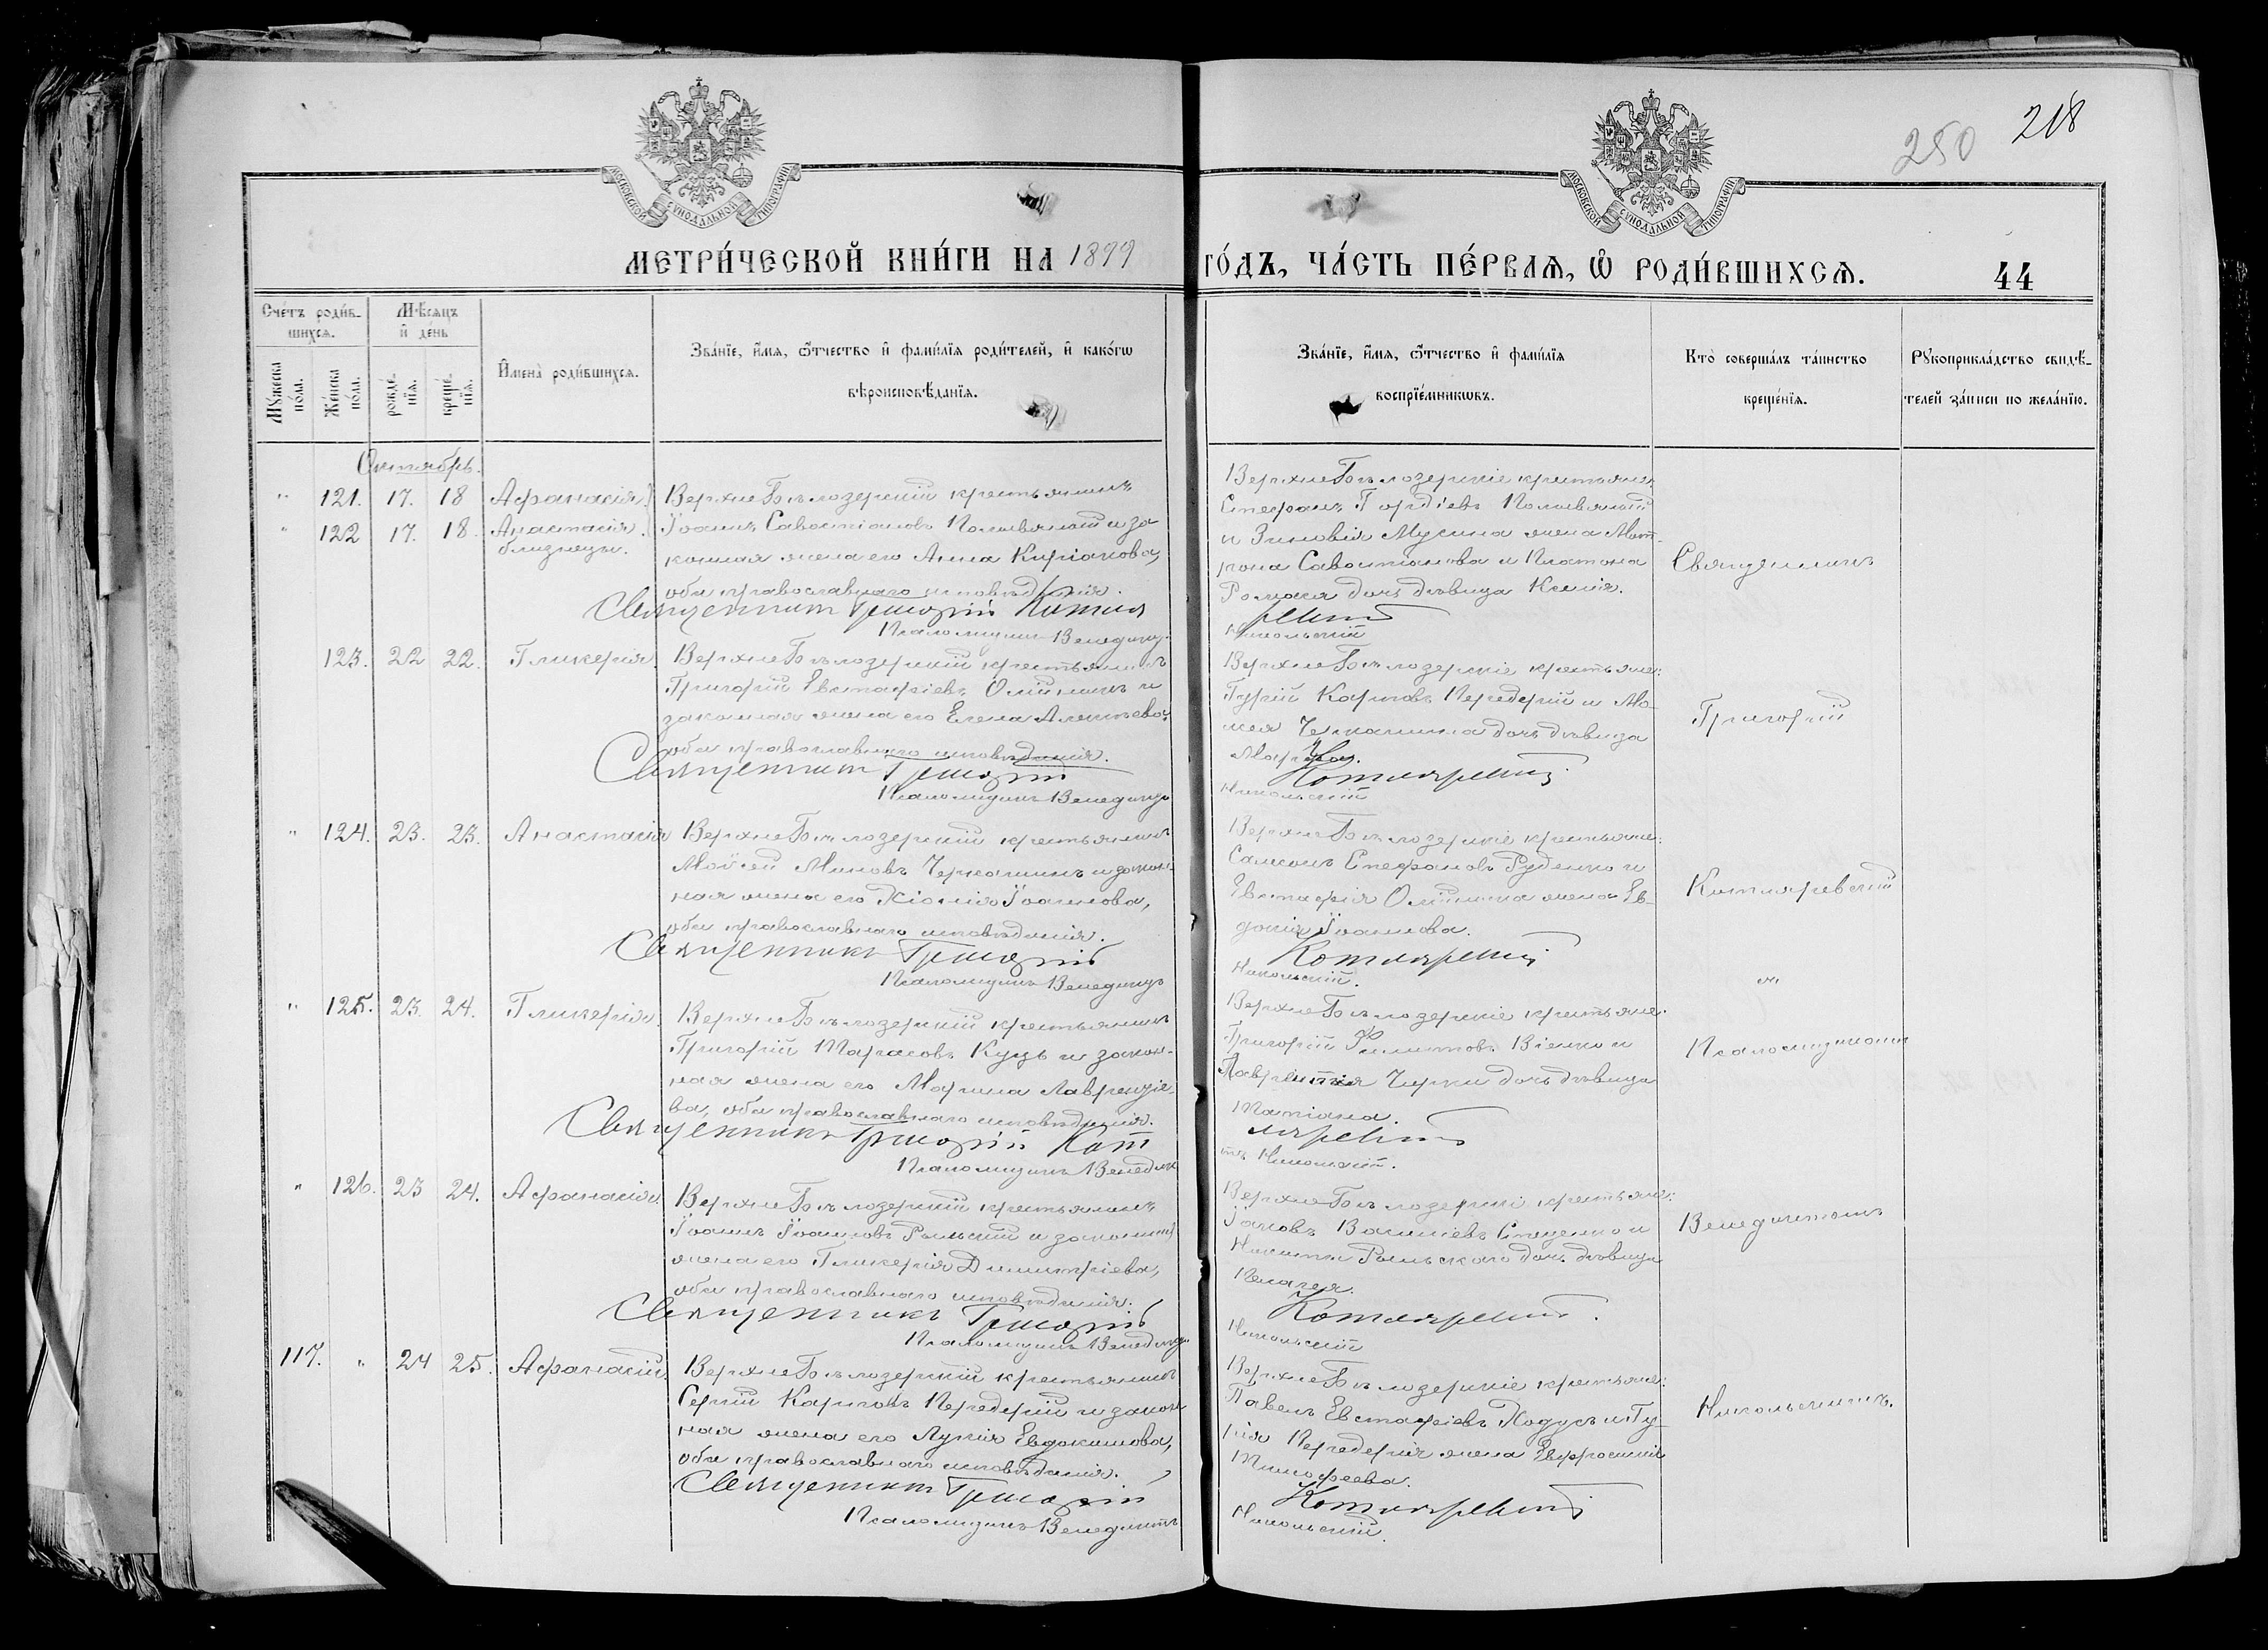 218
250
МОСКОВСКОЙ СѴНОДАЛЬНОЙ ТИПОГРАФІИ
МОСКОВСКОЙ СѴНОДАЛЬНОЙ ТИПОГРАФІИ
МЕТРИ́ЧЕСКОЙ КНИ́ГИ НА 1899 ГО́ДЪ, ЧА́СТЬ ПЕ́РВАѦ, Ѡ҆ РОДИ́ВШИХСѦ.
44
Сче́тъ роди́в-
шихсѧ.
Мꙋжеска по́ла.
Же́нска по́ла.
Мѣ́сѧцъ и҆ де́нь
рожде́-нїѧ.
креще́-нїѧ.
И҆мена̀ роди́вшихсѧ.
Зва́нїе, и҆́мѧ, ѻ҆́тчество и҆ фами́лїѧ роди́телей, и҆ како́гѡ
вѣроисповѣ́данїѧ.
Зва́нїе, и҆́мѧ, ѻ҆́тчество и҆ фами́лїѧ
воспрїе́мникѡвъ.
Кто̀ соверша́лъ та́инство
креще́нїѧ.
Рꙋкоприкла́дство свидѣ́-
телей за́писи по жела́нїю.
Октябрь.
" 121. 17. 18 Афанасія
" 122 17. 18. Анастасія.
близнецы.
ВерхнеБѣлозерскій крестьянинъ
Іоаннъ Савостіановъ и за
конная жена его Анна Киріакова,
оба православнаго исповѣданія.
Священникъ Григорій Котля
Псаломщикъ Венедикт
ВерхнеБѣлозерскіе крестьяне
Стефанъ Гордіевъ
и Зиновія Мусина жена Мат-
рона Савостьянова и Платона
дочь дѣвица Ксенія.
ревскій
Никольскій
Священникъ
123. 22 22. Гликерія
ВерхнеБѣлозерскій крестьянинъ
Григорій Евстафіевъ и
законная жена его Елена
оба православнаго исповѣданія.
Священникъ Григорій
Псаломщикъ Венедиктъ
ВерхнеБѣлозерскіе крестьяне:
Гурій Карповъ Передерій и Мо-
исея Черкашина дочь дѣвица
Котляревскій
Никольскій
Григорій
" 124. 23. 23. Анастасія
ВерхнеБѣлозерскій крестьянинъ
Моисей Миновъ Черкашинъ и закон
ная жена его Іоаннова,
оба православнаго исповѣданія.
Священникъ Григорій
Псаломщикъ Венедиктъ
ВерхнеБѣлозерскіе крестьяне:
Самсонъ Стефановъ Руденко и
Евстафія жена Ев-
докія Іоаннова.
Котляревскій
Никольскій.
Котляревскій
" 125. 23. 24. Гликерія.
ВерхнеБѣлозерскій крестьянинъ
Григорій Тарасовъ Куць и закон-
ная жена его Марина Лаврентіе-
ва, оба православнаго исповѣданія.
Священникъ Григорій Кот
Псаломщикъ Венедик
ВерхнеБѣлозерскіе крестьяне.
Григорій Филиповъ и
Лаврентія дочь дѣвица
Татіана.
ляревскій
тъ Никольскій.
съ
Псаломщикомъ
" 126. 23 24. Афанасія
ВерхнеБѣлозерскій крестьянинъ
Іоаннъ Іоанновъ Рыльскій и законная
жена его Гликерія Димитріева,
оба православнаго исповѣданія.
Священникъ Григорій
Псаломщикъ Венедикт.
ВерхнеБѣлозерскіе крестьяне:
Іаковъ Василіевъ Стаценко и
Никиты Рыльскаго дочь дѣвица
Пелагея.
Котляревскій.
Никольскій
Венедиктомъ
117. " 24 25. Афанасій
ВерхнеБѣлозерскій крестьянинъ
Сергій Карповъ Передерій и закон
ная жена его Лукія Евдокимова,
оба православнаго исповѣданія.
Священникъ Григорій
Псаломщикъ Венедиктъ
ВерхнеБѣлозерскіе крестьяне:
Павелъ Евстафіевъ Ходусъ и Гу-
рія Передерія жена Евфросинія
Тимофеева.
Котляревскій
Никольскій.
Никольскимъ.